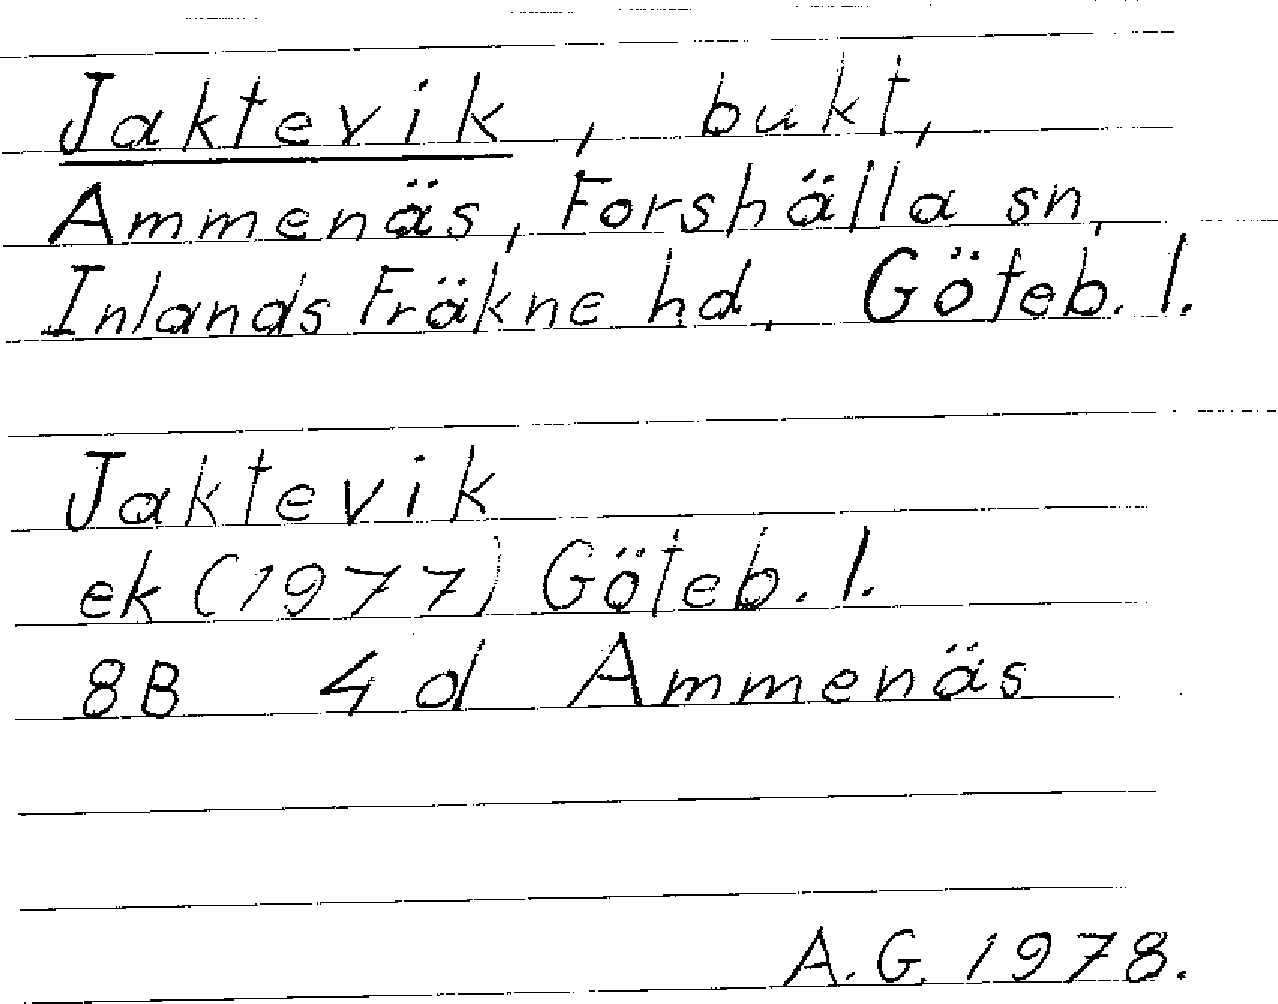 Jaktevik, bukt,
Ammenäs, Forshälla sn,
Inlands Fräkne hd, Göteb. l.
Jaktevik
ek (1977) Göteb. l.
8B 4d Ammenäs
A.G. 1978.